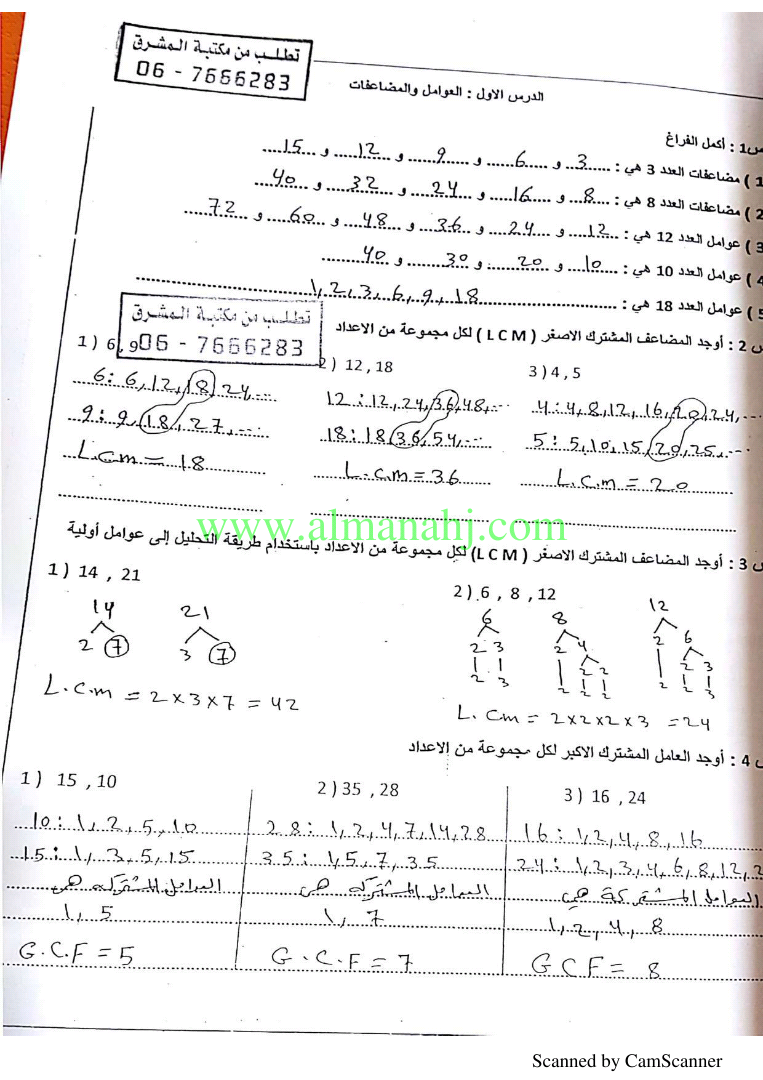 تطلب من مكتبة المشرق
06 - 7666283
الدرس الاول : العوامل والمضاعفات
س1 : أكمل الفراغ
1 ) مضاعفات العدد 3 هي : .....3..... و .....6..... و .....9..... و .....12..... و .....15.....
2 ) مضاعفات العدد 8 هي : .....8..... و .....16..... و .....24..... و .....32..... و .....40.....
3 ) عوامل العدد 12 هي : .....12..... و .....24..... و .....36..... و .....48..... و .....60..... و .....72.....
4 ) عوامل العدد 10 هي : .....10..... و .....20..... و .....30..... و .....40.....
5 ) عوامل العدد 18 هي : ..... 1, 2, 3, 6, 9, 18 .....
تطلب من مكتبة المشرق
06 - 7666283
س 2 : أوجد المضاعف المشترك الاصغر ( L C M ) لكل مجموعة من الاعداد
1 ) 6, 9
2 ) 12 , 18
3 ) 4 , 5
6 : 6, 12, 18, 24, ...
12 : 12, 24, 36, 48, ...
4 : 4, 8, 12, 16, 20, 24, ...
9 : 9, 18, 27, ...
18 : 18, 36, 54, ...
5 : 5, 10, 15, 20, 25, ...
L.C.m = 18
L.C.m = 36
L.C.m = 20
www.almanahj.com
س 3 : أوجد المضاعف المشترك الاصغر ( L C M ) لكل مجموعة من الاعداد باستخدام طريقة التحليل إلى عوامل أولية
1 ) 14 , 21
2 ) 6 , 8 , 12
14 21
2 7 3 7
6 8 12
2 3 2 4 2 6
2 2 2 3
2 3 2 2 2 2 2 3
L.C.m = 2 x 3 x 7 = 42
L.Cm = 2 x 2 x 2 x 3 = 24
س 4 : أوجد العامل المشترك الاكبر لكل مجموعة من الاعداد
1 ) 15 , 10
2 ) 35 , 28
3 ) 16 , 24
10 : 1, 2, 5, 10
28 : 1, 2, 4, 7, 14, 28
16 : 1, 2, 4, 8, 16
15 : 1, 3, 5, 15
35 : 1, 5, 7, 35
24 : 1, 2, 3, 4, 6, 8, 12, 2
العوامل المشتركه هي
العوامل المشتركه هي
العوامل المشتركة هي
1, 5
1, 7
1, 2, 4, 8
G.C.F = 5
G.C.F = 7
GCF = 8
Scanned by CamScanner